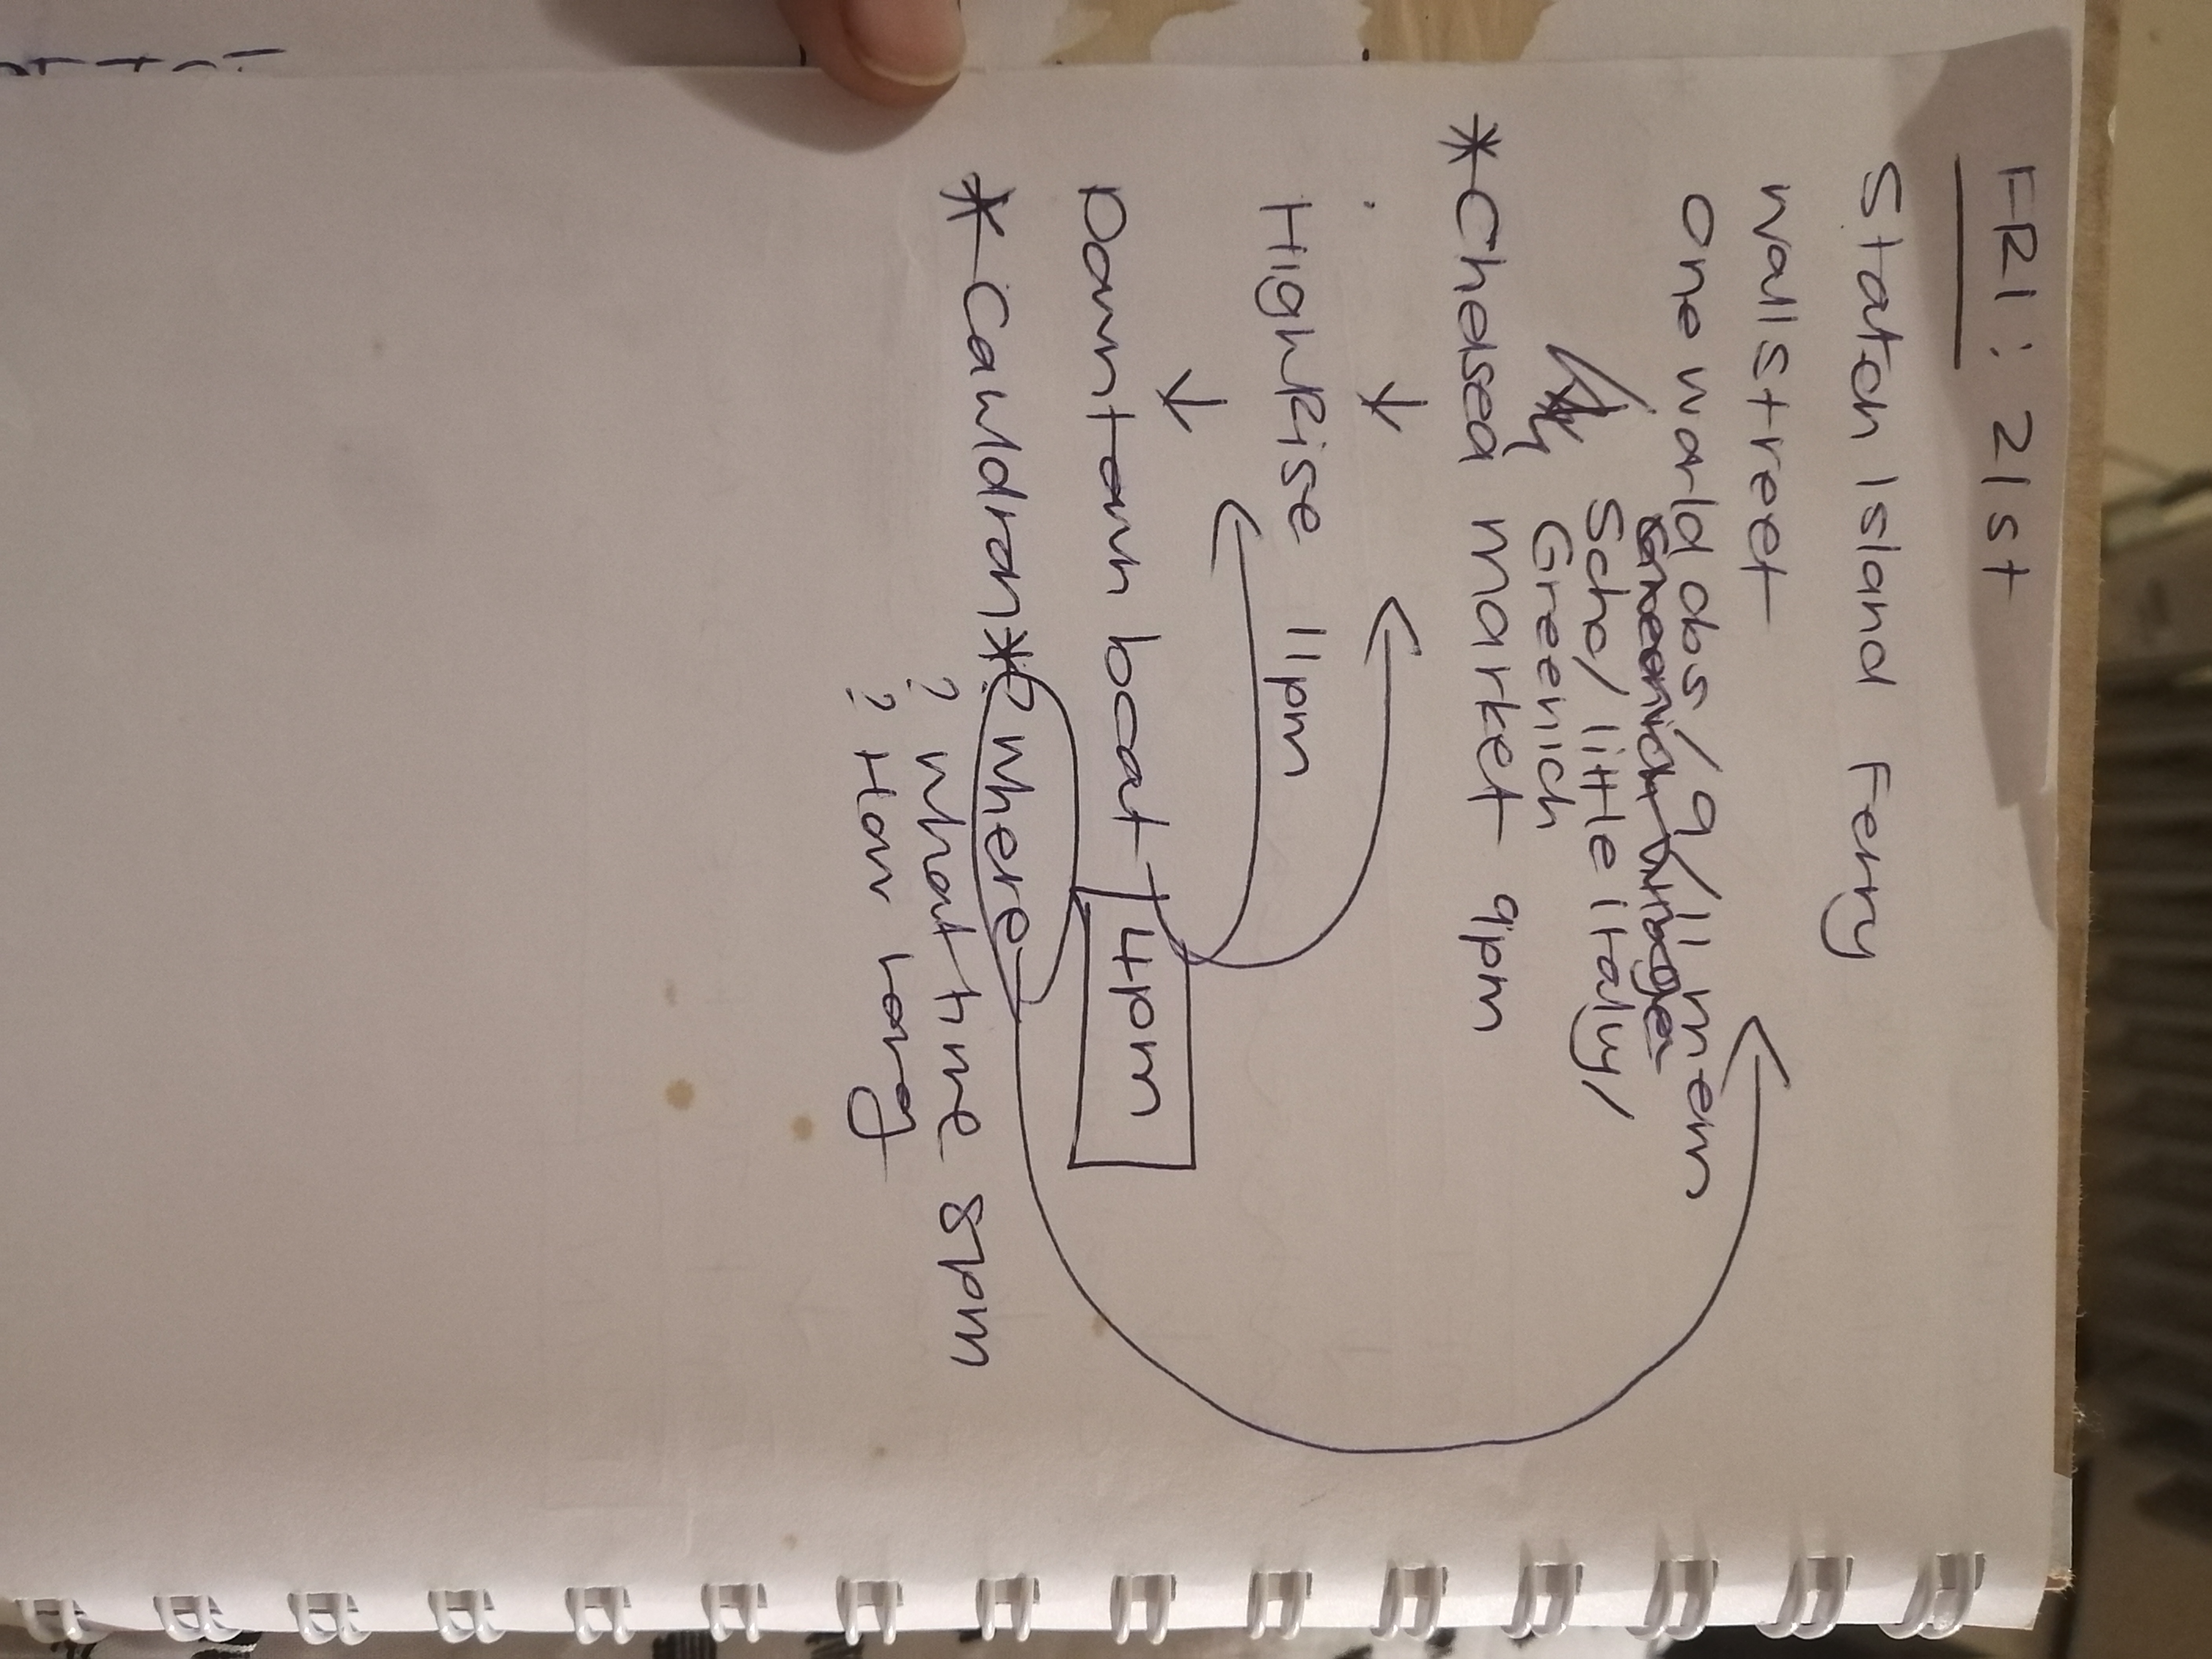 FRI: 21st
Staten Island Ferry
Wall street
One world obs/9/11 mem
Greenich village
Soho/little italy/
Greenich
*Chelsea market 9pm
↓
HighRise 11pm
↓
Downtown boat 4pm
*Cauldron* ? where
? what time 8pm
? How long